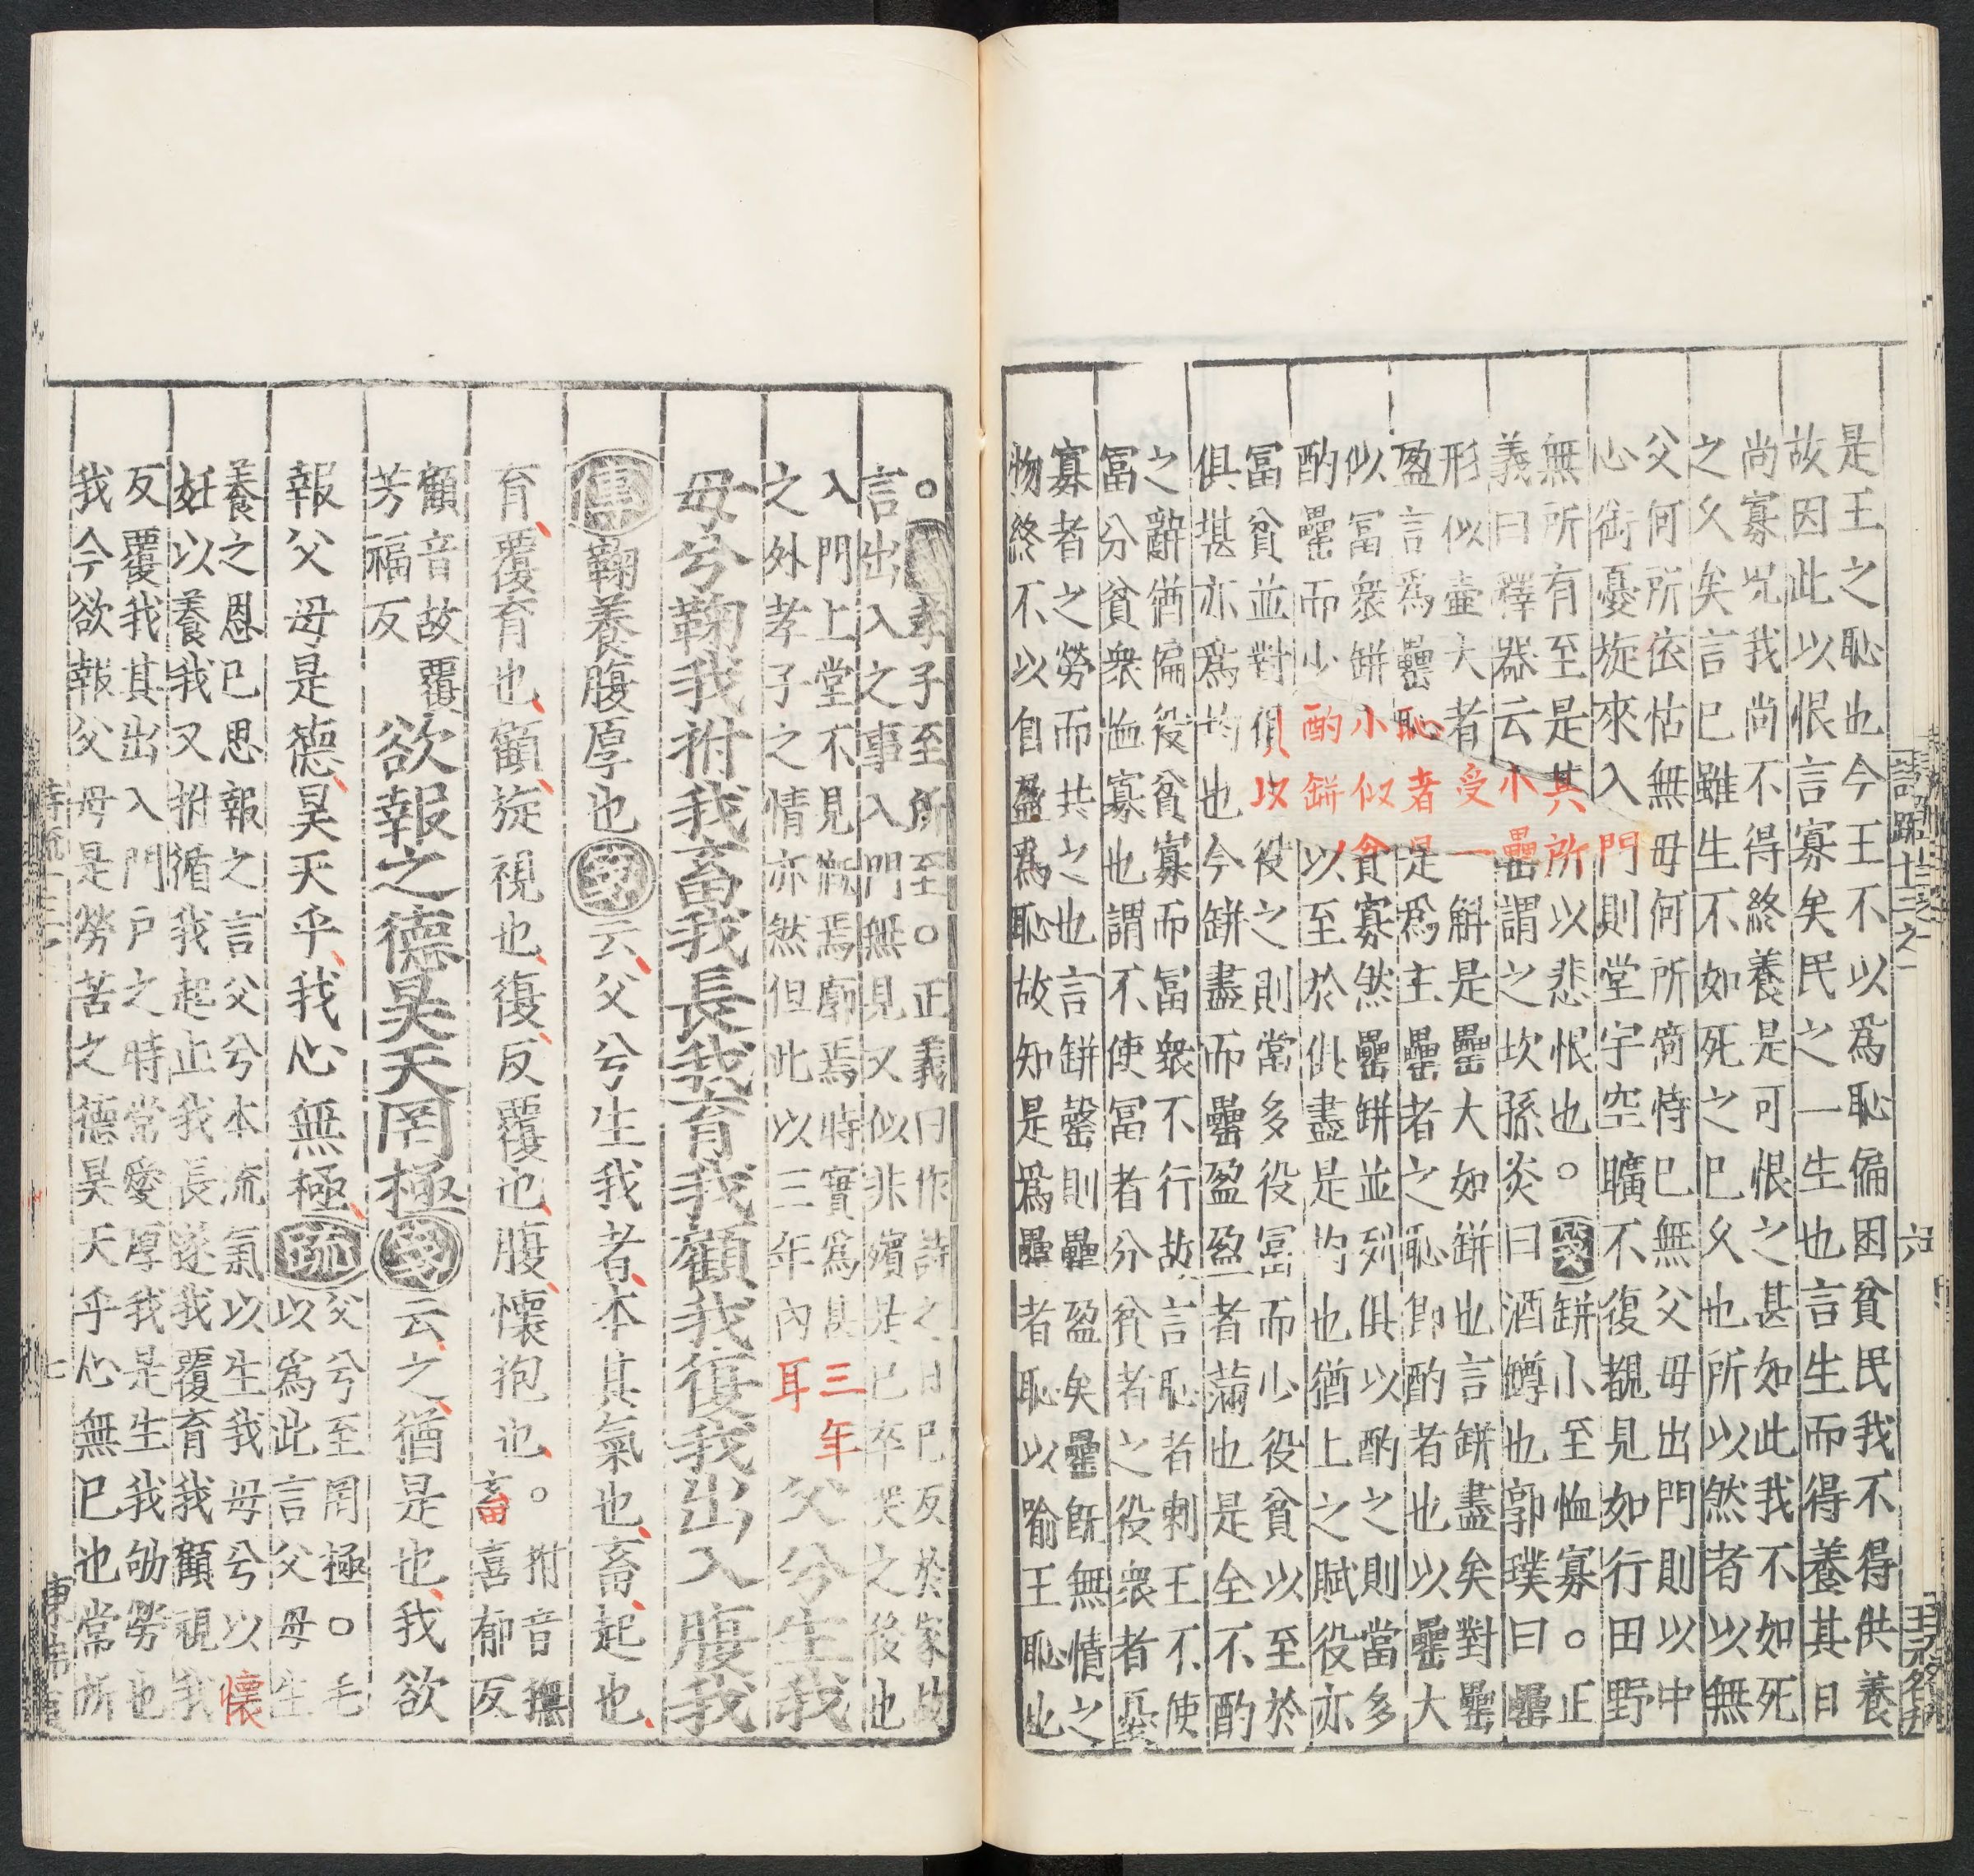 是王之恥也今王不以爲恥偏困貧民我不得供養
故因此以恨言寡矣民之一生也言生而得養其日
尚寡況我尚不得終養是可恨之甚如此我不如死
之久矣言已雖生不如死之已久也所以然者以無
父何所依怙無母何所倚恃已無父母出門則以中
心銜憂旋來入門則堂宇空曠不復覩見如行田野
無所有至是其所以悲恨也。箋缾小至恤寡。正
義曰釋器云小罍謂之坎孫炎曰酒罇也郭璞曰罍
形似壷大者受一斛是罍大如缾也言缾盡矣對罍
盈言爲罍恥者是爲主罍者之恥即酌者也以罍大
似冨衆缾小似貧寡然罍缾並列俱以酌之則當多
酌罍而少酌缾以至於俱盡是均也猶上之賦役亦
冨貧並對俱以役之則當多役冨而少役貧以至於
俱堪亦爲均也今缾盡而罍盈盈者滿也是全不酌
之辭猶偏役貧寡而冨衆不行故言恥者刺王不使
冨分貧衆恤寡也謂不使冨者分貧者之役衆者憂
寡者之勞而共之也言缾罄則罍盈矣罍旣無情之
物終不以自盈爲恥故知是爲罍者恥以喻王恥也
詩疏十三之一
六
。孝子至所至。正義曰作詩之日已反於家故
言出入之事入門無見又似非殯是已卒哭之後也
入門上堂不見慨焉廓焉時實爲其三年
之外孝子之情亦然但此以三年內耳
父兮生我
母兮鞠我拊我畜我長我育我顧我復我出入腹我
傳鞠養腹厚也箋云父兮生我者本其氣也畜起也
育覆育也顧旋視也復反覆也腹懷抱也。拊音撫
畜喜郁反
顧音故覆
芳福反
欲報之德昊天罔極箋云之猶是也我欲
報父母是德昊天乎我心無極疏父兮至罔極。毛
以爲此言父母生
養之恩已思報之言父兮本流氣以生我母兮以懷
妊以養我又拊循我起止我長遂我覆育我顧視我
反覆我其出入門戶之時常愛厚我是生我劬勞也
我今欲報父母是勞苦之德昊天乎心無已也常所
七